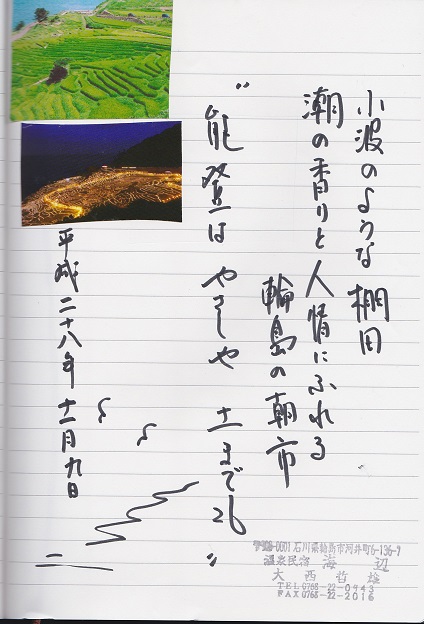 小波のような棚田
潮の香りと人情にふれる
輪島の朝市
〝能登はやさしや土までも〟
平成二十八年十一月九日
〒928-0001 石川県輪島市河井町6-136-7
温泉民宿 海辺
大西哲雄
TEL0768-22-0943
FAX0768-22-2016